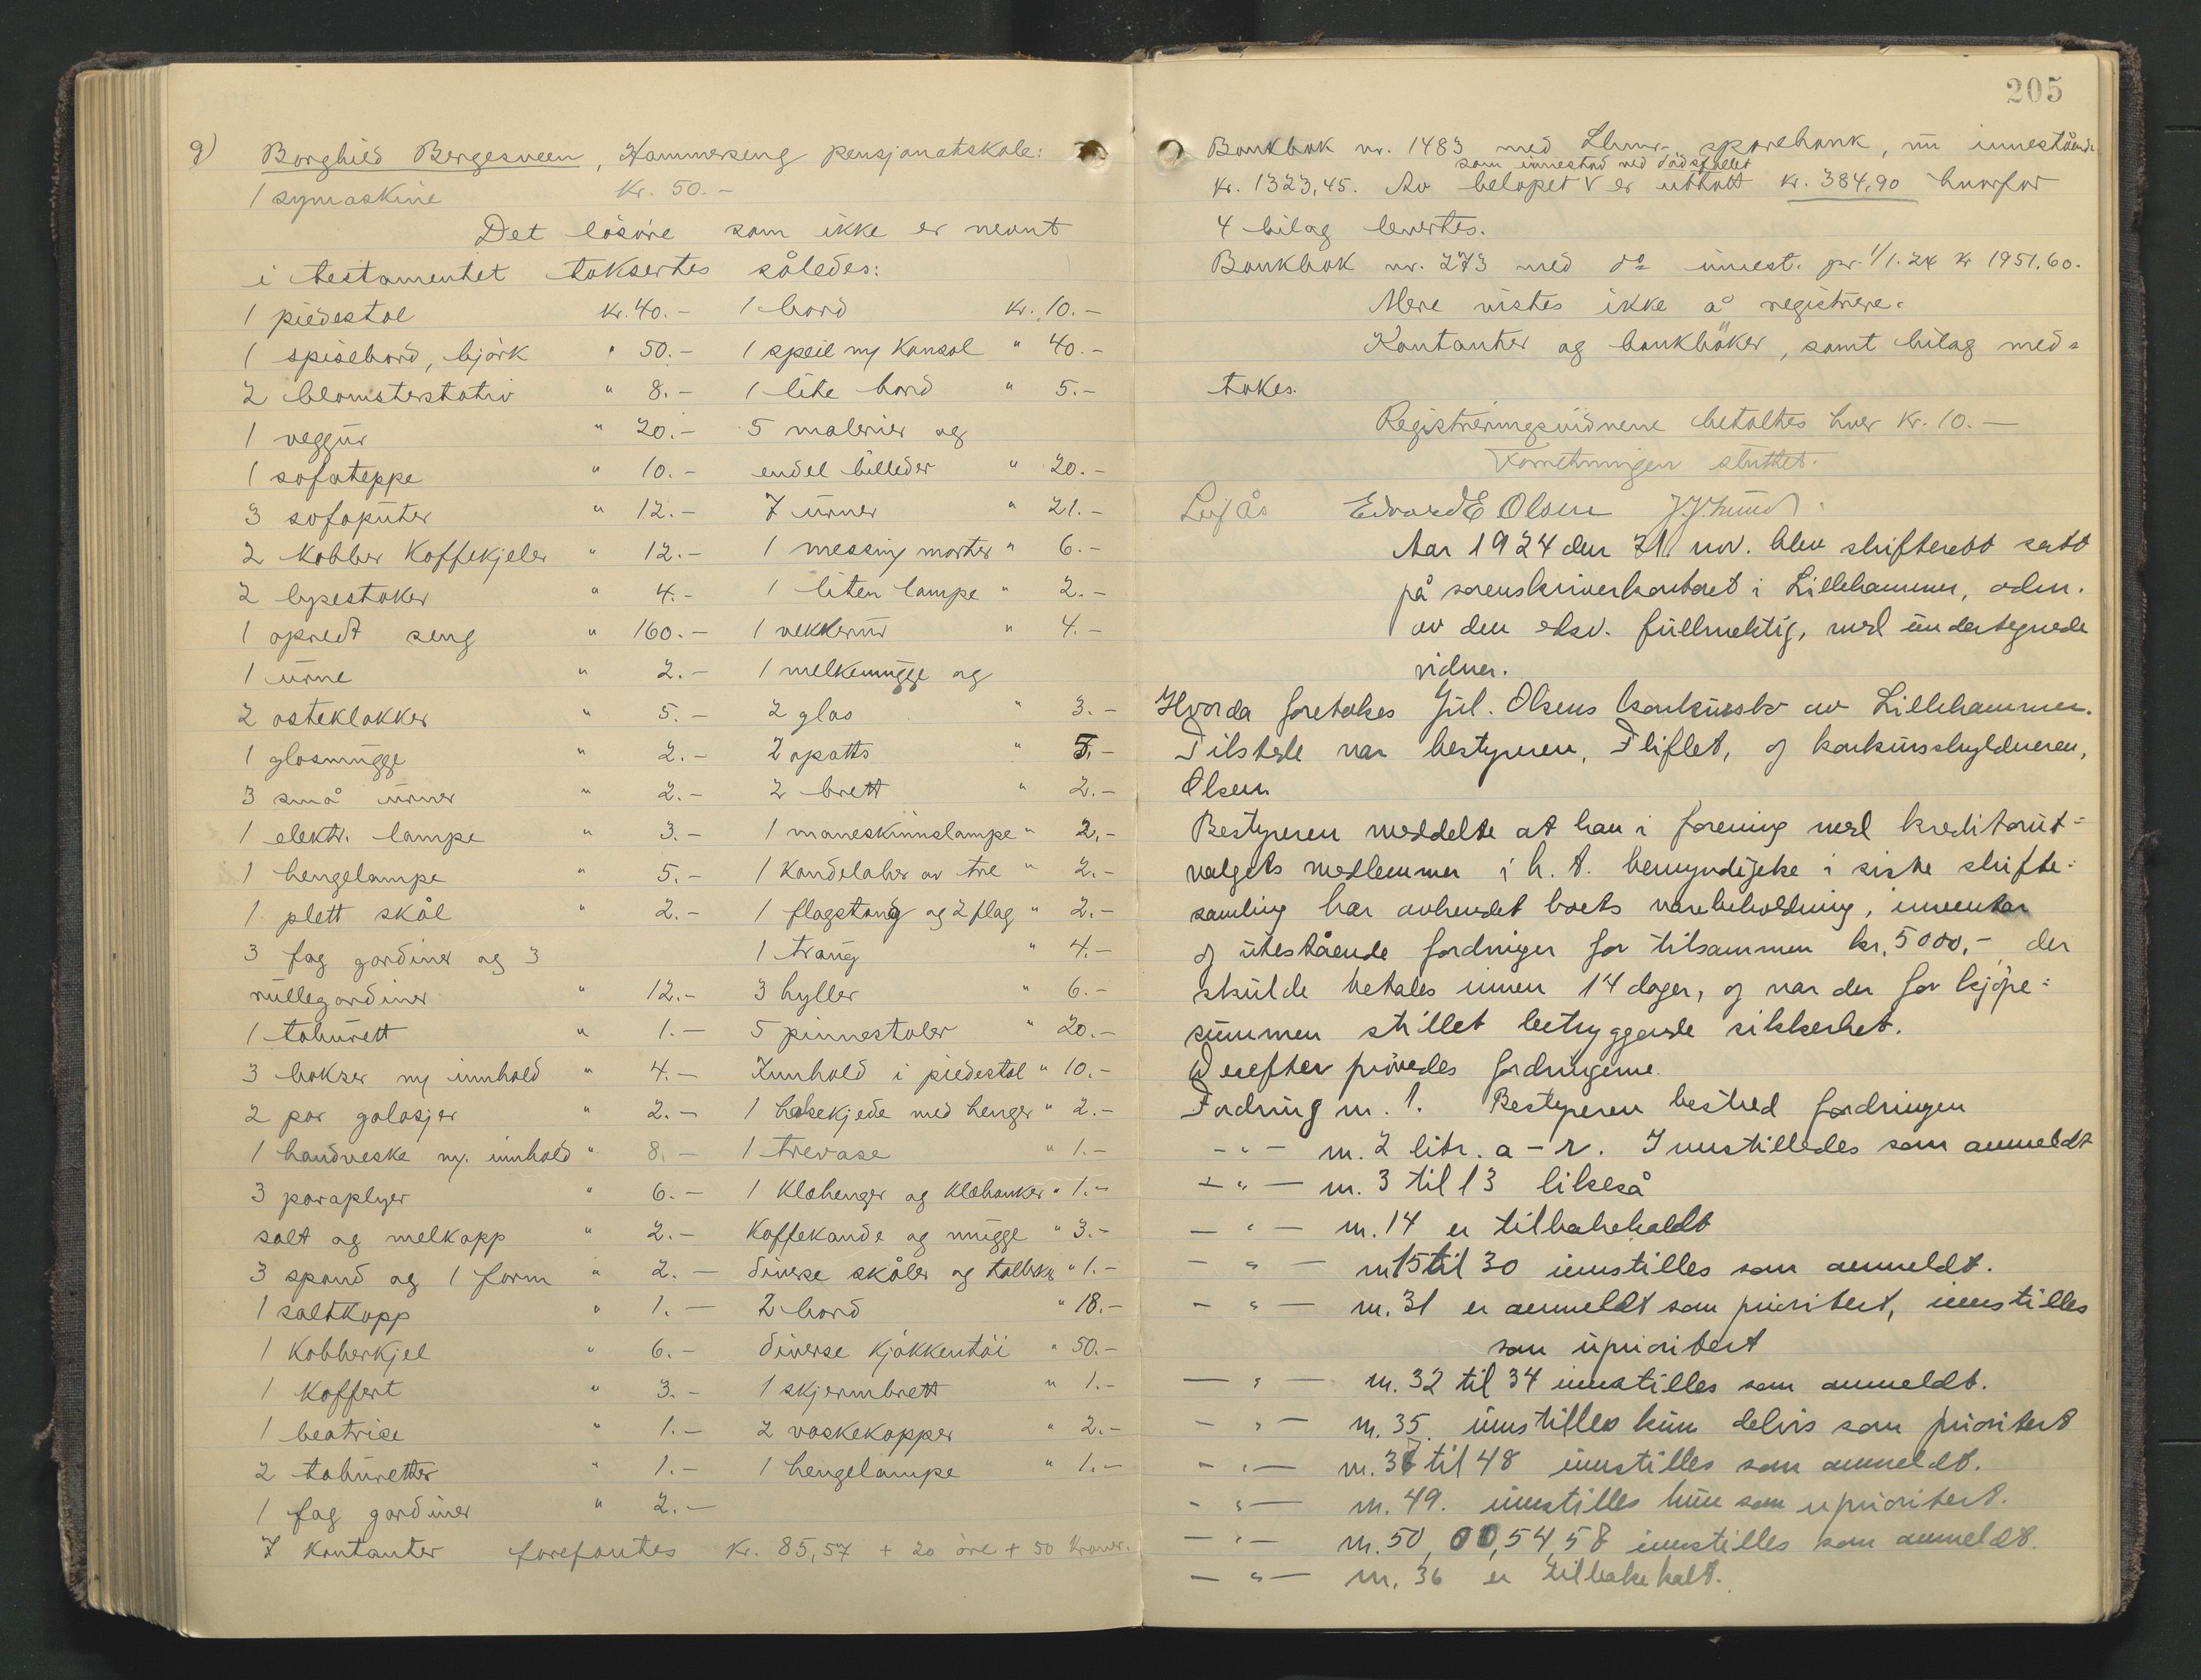 g) Borghild Bergesveen, Hammerseng pensjonatskole:
1 symaskine kr. 50.-
Det lösöre som ikke er nevnt
i testamentet taksertes således:
1 piedestal kr. 40.- 1 bord kr. 10.-
1 spisebord, björk " 50.- 1 speil m/ Konsol " 40.-
2 blomsterstativ " 8.- 1 lite bord " 5.-
1 veggur " 20.- 5 malerier og
1 sofateppe " 10.- endel billeder " 20.-
3 sofaputer " 12.- 7 urner " 21.-
2 Kobber Kaffekjeler " 12.- 1 messing morter " 6.-
2 lysestaker " 4.- 1 liten lampe " 2.-
1 opredt seng " 160.- 1 vekkerur " 4.-
1 urne " 2.- 1 melkemugge og
2 osteklokker " 5.- 2 glas " 3.-
1 glasmugge " 2.- 2 opsatts " 5.-
3 små urner " 2.- 2 brett " 2.-
1 elektr. lampe " 3.- 1 maneskinnslampe " 2.-
1 hengelampe " 5.- 1 Kandelaber av tre " 2.-
1 plett skål " 2.- 1 flagstang og 2 flag " 2.-
3 fag gardiner og 3 1 traug " 4.-
rullegardiner " 12.- 3 hyller " 6.-
1 taburett " 1.- 5 pinnestoler " 20.-
3 bokser m/ innhold " 4.- Innhold i piedestal " 10.-
2 par galosjer " 2.- 1 halsekjede med henger " 2.-
1 handveske m/. innhold " 8.- 1 trevase " 1.-
3 paraplyer " 6.- 1 Klæhenger og Klæbanker " 1.-
salt og melkopp " 2.- Kaffekande og mugge " 3.-
3 spand og 1 form " 2.- diverse skåler og tallerkn " 1.-
1 saltkopp " 1.- 2 bord " 18.-
1 Kobberkjel " 6.- diverse kjökkentöi " 50.-
1 Koffert " 3.- 1 skjermbrett " 1.-
1 beatrice " 1.- 2 vaskekopper " 2.-
2 taburetter " 1.- 1 hengelampe " 1.-
1 fag gardiner " 2.-
I kontanter forefantes kr. 85,57 + 20 öre + 50 kroner.
205
Bankbok nr. 1483 med Lhmr. sparebank, nu innestående
som innestod ved dödsfallet
kr. 1323,45. Av belöpet V er uttatt kr. 384,90 hvorfor
4 bilag levertes.
Bankbok nr. 273 med do innest. pr. 1/1.24 kr 1951.60.
Mere vistes ikke å registrere.
Kontanter og bankböker, samt bilag med=
takes.
Registreringsvidnene betaltes hver kr. 10.-
Forretningen sluttet.
Leif Ås Edvard E Olsen
Aar 1924 den 21. nov. blev skifterett satt
på sorenskriverkontoret i Lillehammer, adm.
av den edsv. fullmektig, med undertegnede
vidner.
Hvorda foretakes Jul. Olsens konkursbo av Lillehammer.
Tilstede var bestyreren, Fliflet, og konkursskyldneren,
Olsen
Bestyreren meddelte at han i forening med kreditorut=
valgets medlemmer i h. t. bemyndigelse i siste skifte=
samling har avhendet boets varebeholdning, inventar
og utestående fordringer for tilsammen kr. 5000,- der
skulde betales innen 14 dager, og var der for kjöpe=
summen stillet betryggende sikkerhet.
Derefter prövedes fordringerne.
Fordring nr. 1. Bestyreren bestred fordringen
- " - nr. 2 litr. a - r. Innstilledes som anmeldt
- " - nr. 3 til 13 likeså
- " - nr. 14 er tilbakekaldt
- " - nr 15 til 30 innstilles som anmeldt.
- " - nr. 31 er anmeldt som prioritert, innstilles
som uprioritert
- " - nr. 32 til 34 innstilles som anmeldt.
- " - nr. 35. innstilles kun delvis som prioritert
- " - nr. 37 til 48 innstilles som anmeldt.
- " - nr. 49. innstilles kun som uprioritert.
- " - nr. 50, 54, 58 innstilles som anmeldt.
- " - nr. 36 er tilbakekalt.